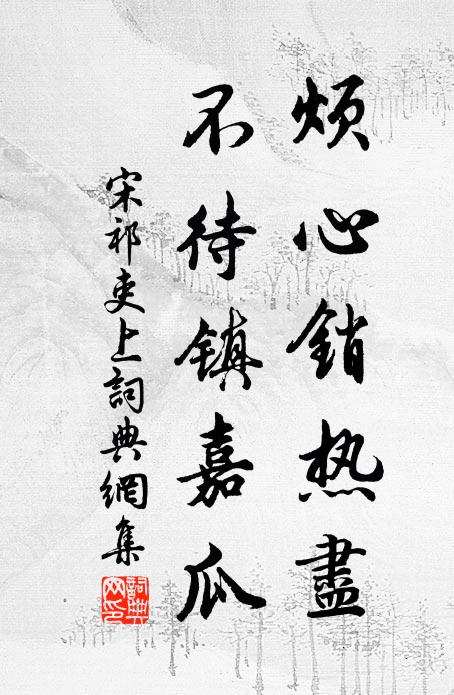 烦心銷热盡
不待鎮嘉瓜
宋祁吏上詞典網集
詞典网印